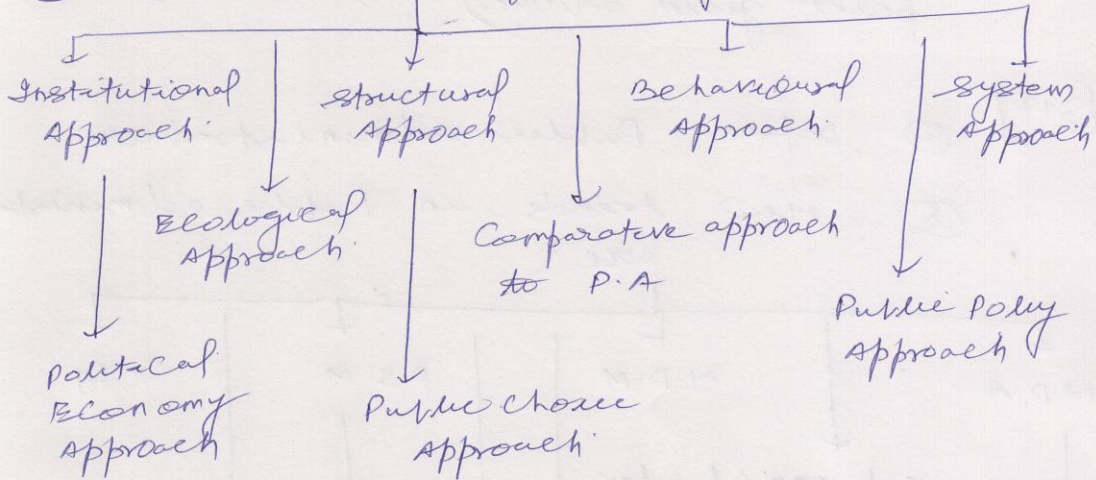 Institutional
Approach
Structural
Approach
Behavioural
Approach
System
Approach
Ecological
Approach
Comparative approach
to P.A
Public Policy
Approach
Political
Economy
Approach
Public choice
Approach